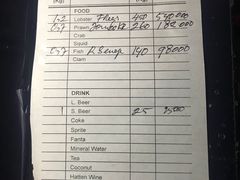 (kg)
FOOD
Lobster 450 540000
Prawn 260 182000
Crab
Squid
Fish 140 98000
Clam
DRINK
L. Beer
1 S. Beer 25
Coke
Sprite
Fanta
Mineral Water
Tea
Coconut
Hatten Wine